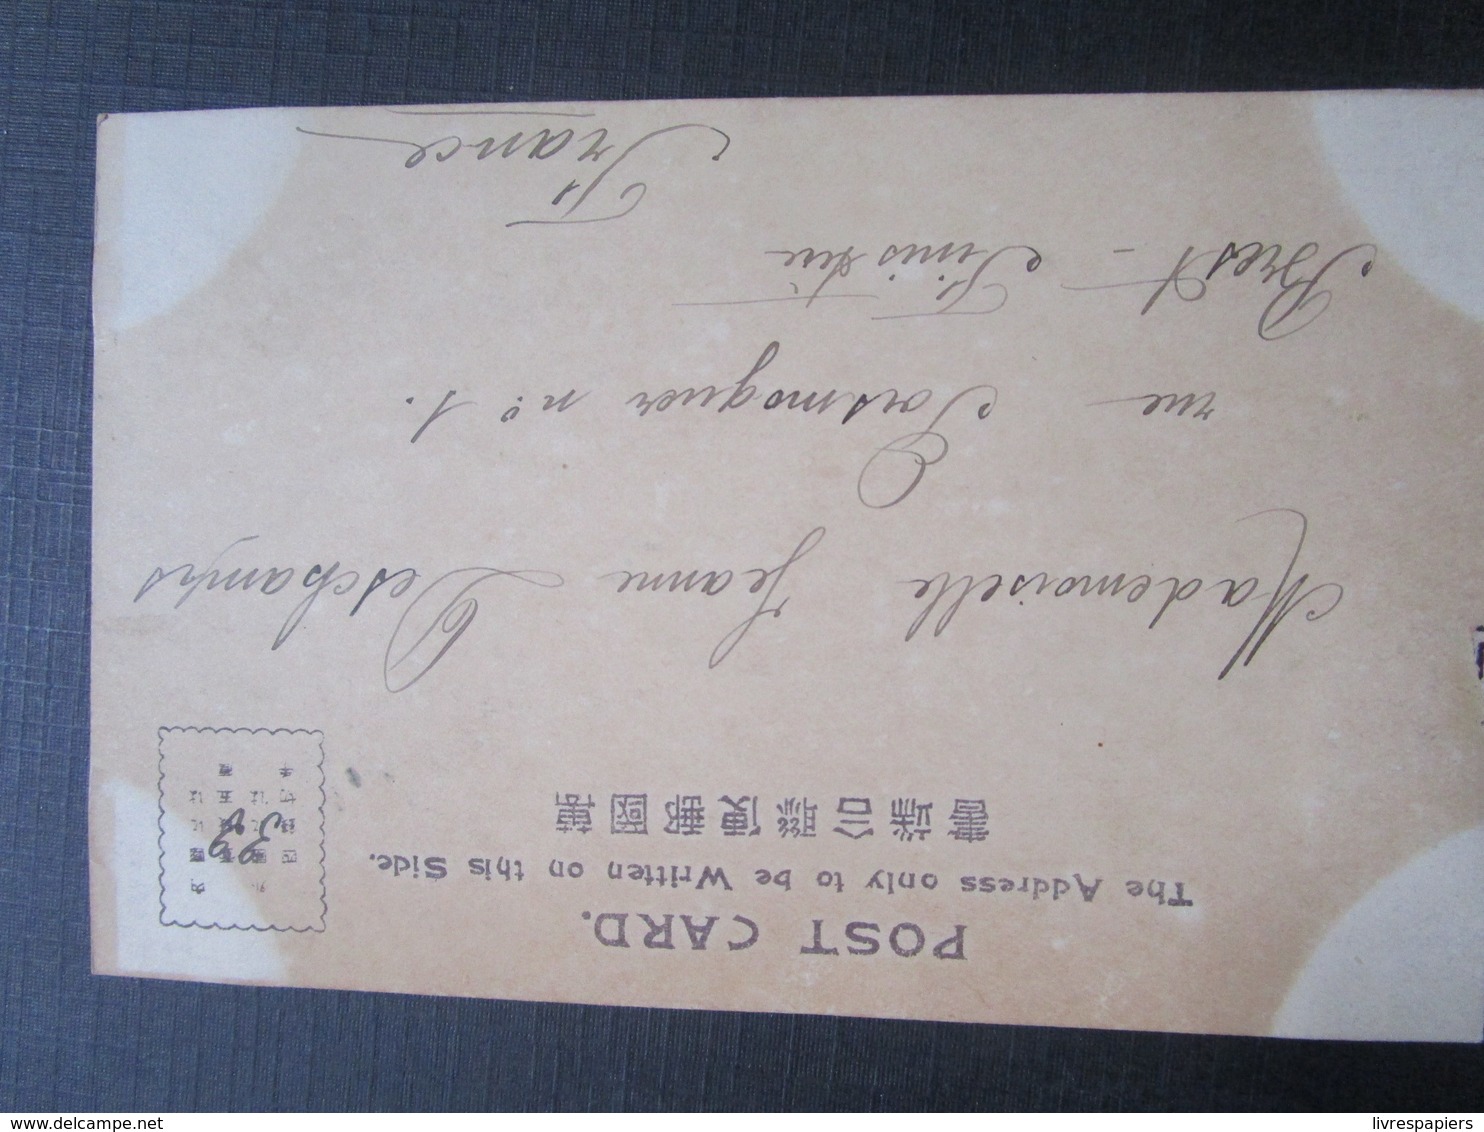 POST CARD.
The Address only to be Written on this Side.
萬國郵便聯合端書
Mademoiselle Jeanne Deschamps
rue Portmoguer n° 1.
Brest - Finistère
France
delcampe.net
livrespapiers